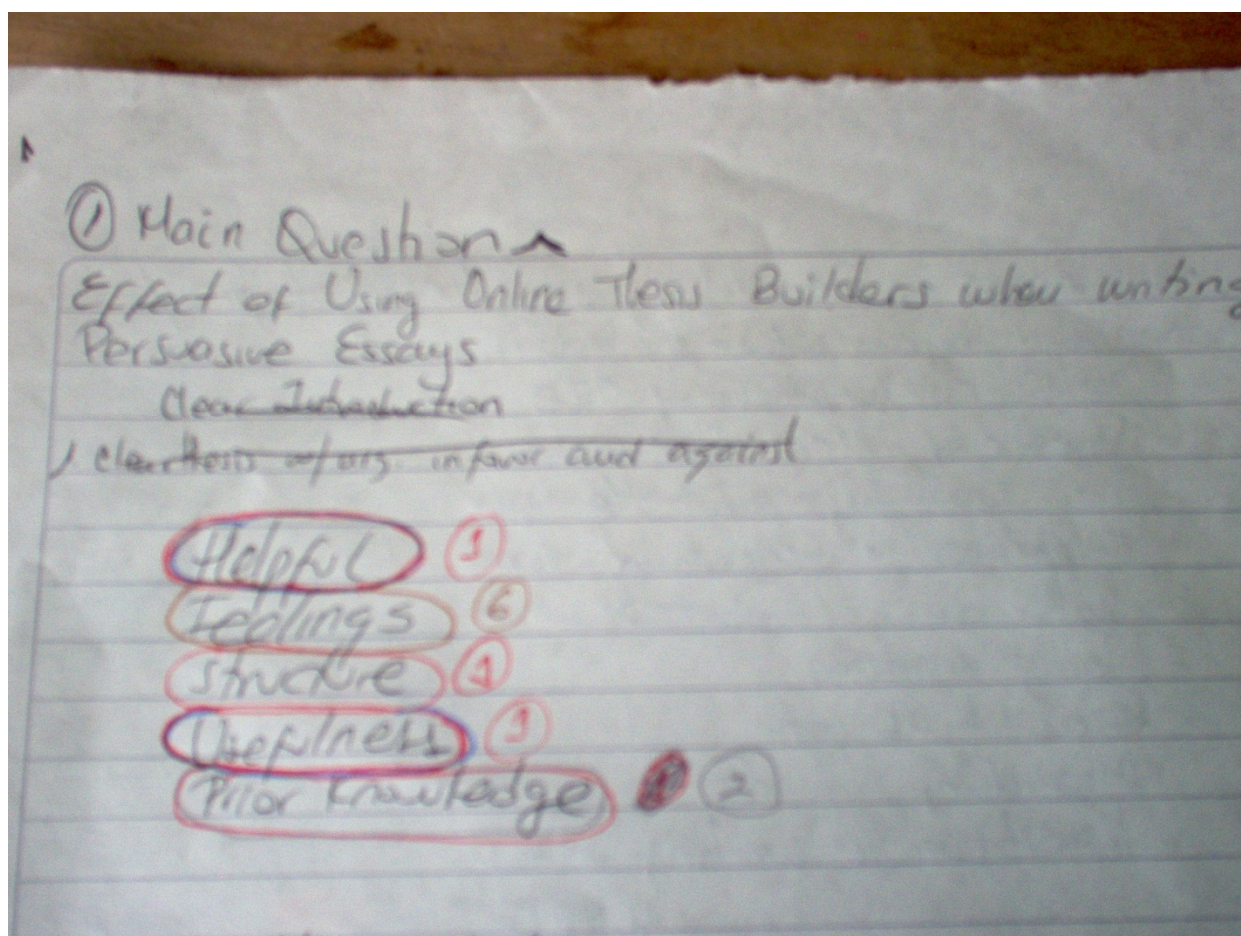 ① Main Question
Effect of Using Online Thesis Builders when writing
Persuasive Essays
Clear Introduction
clear thesis w/ arg. in favor and against
Helpful 1
Feelings 6
Structure 1
Usefulness 1
Prior Knowledge 2